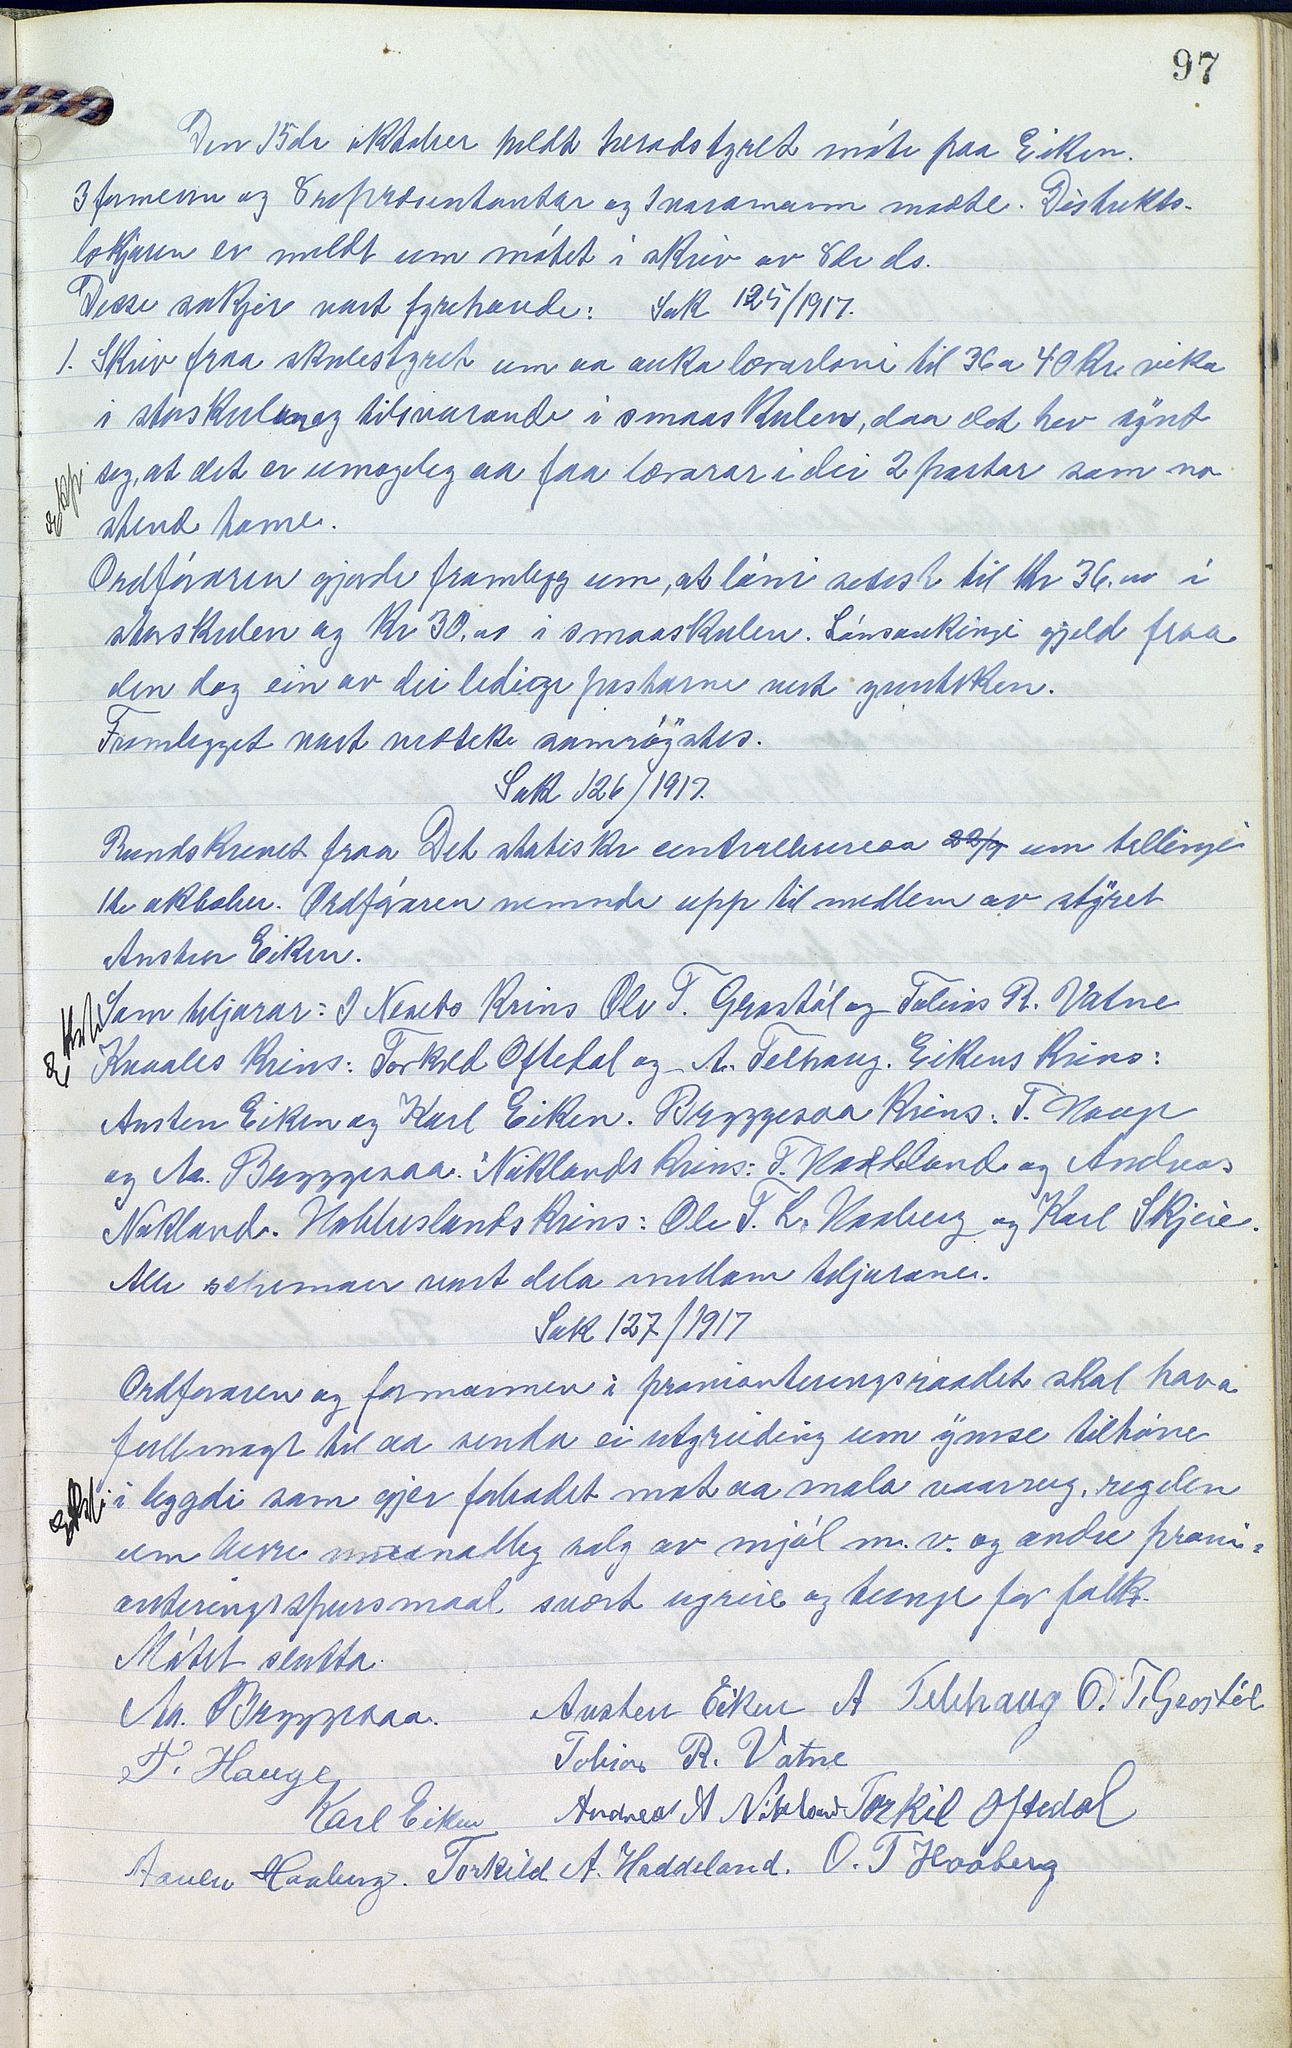 97
Den 15de oktober heldt heradstyret móte paa Eiken.
3 formenn og 8 repræsentantar og 1 varamann mødte. Distrikts-
lækjaren er meldt um mótet i skriv av 8de ds.
Desse sakjer vart fyrehavde: Sak 125/1917.
1. Skriv fraa skulestyret um aa auka lærarløni til 36 a 40 kr. vika
i storskulen og tilsvarande i smaaskulen, daa det hev synt
seg, at det er umogeleg aa faa lærarar i dei 2 postar som no
stend tome.
Ordføraren gjorde framlegg um, at løni setest til kr 36.00 i
storskulen og kr 30.00 i smaaskulen. Lønsaukingi gjeld fraa
den dag ein av dei ledige postarne vert
Framlegget vart vedteke samrøystes.
Sak 126/1917.
Rundskrivet fraa Det statistiske centralbureaa um teljingi
1te oktober. Ordføraren nemnde upp til medlem av styret
Austen Eiken.
Som teljarar: I Nesets krins Ole T. Grostøl og Tobias R. Vatne
Kvaales krins: Torkild Oftedal og A. Telhaug. Eikens krins:
Austen Eiken og Karl Eiken. Bryggesaa krins: T. Hauge
og Aa. Bryggesaa. Niklands krins: T. Haddeland og Andreas
Nikland. Hobbeslands krins: Ole T. L. Haaberg og Karl Skjeie.
Alle schemaer vart dela millom teljarane.
Sak 127/1917
Ordføraren og formannen i provianteringsraadet skal hava
fullmagt til aa senda ei utgreiding um ymse tilhøve
i bygdi som gjer forbodet mot aa mala vaarrug, regelen
um berre maanadleg salg av mjøl m.v. og andre provi-
anteringsspursmaal svært ugreie og tunge for folk.
Mótet slutta.
Aa. Bryggesaa. Austen Eiken A Telhaug O. T. Grostøl
T. Hauge Tobias R. Vatne
Karl Eiken Andreas A Nikland Torkil Oftedal
Haaberg. Torkild A. Haddeland. O. T Haaberg